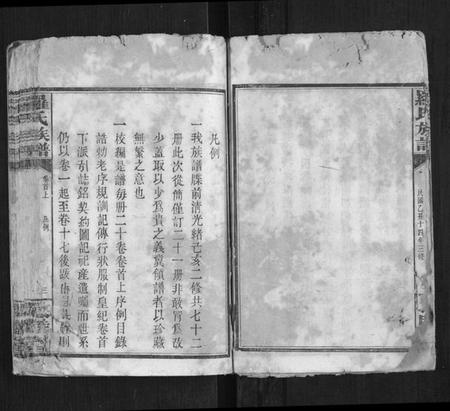 羅氏族譜
民國乙亥十四年三修
凡例
一我族譜牒前清光緒己亥二修共七十二
冊此次從簡僅訂二十一冊非敢苟為改
少蓋取以少為貴之義冀領譜者以珍藏
無繁之意也
一校編是譜每冊二十卷卷首上序例目錄
誥勅老序規訓記傳行狀服制皇紀卷首
下派引誌銘契約圖記祀產遺囑而世系
仍以卷一起至卷十七後跋
羅氏族譜
卷首上
凡例
三